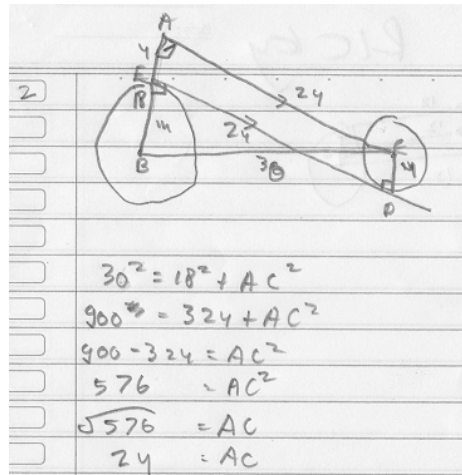 A
4
E
R
24
24
2
14
B
30
C
4
D
30² = 18² + AC²
900 = 324 + AC²
900 - 324 = AC²
576 = AC²
√576 = AC
24 = AC